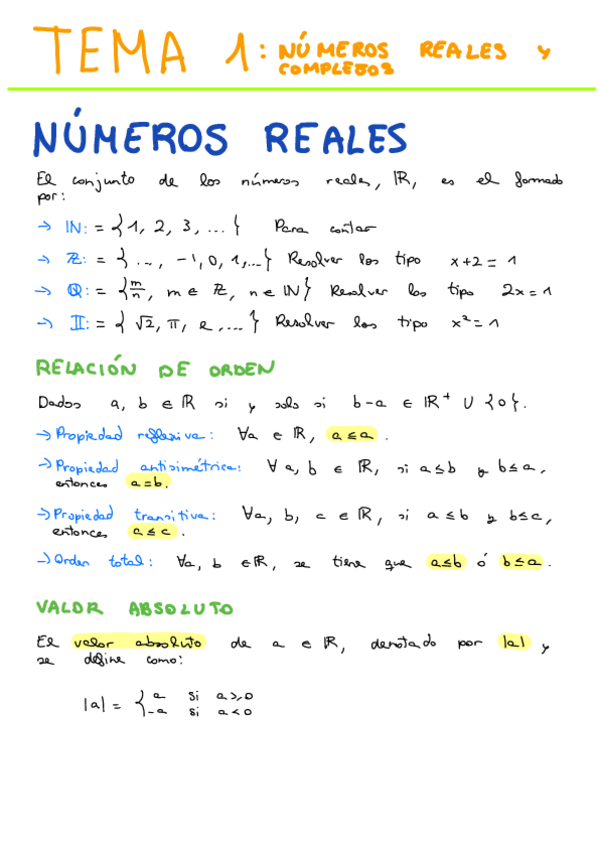 TEMA 1: NÚMEROS REALES Y
COMPLEJOS
NÚMEROS REALES
El conjunto de los números reales, ℝ, es el formado
por:
→ ℕ: = {1, 2, 3, ...} Para contar
→ ℤ: = {..., -1, 0, 1, ...} Resolver los tipo x+2 = 1
→ ℚ: = {m/n, m ∈ ℤ, n ∈ ℕ} Resolver los tipo 2x = 1
→ 𝕀: = {√2, π, e, ...} Resolver los tipo x² = 1
RELACIÓN DE ORDEN
Dados a, b ∈ ℝ si y solo si b-a ∈ ℝ⁺ ∪ {0}.
→ Propiedad reflexiva: ∀a ∈ ℝ, a ≤ a.
→ Propiedad antisimétrica: ∀ a, b ∈ ℝ, si a ≤ b y b ≤ a,
entonces a = b.
→ Propiedad transitiva: ∀a, b, c ∈ ℝ, si a ≤ b y b ≤ c,
entonces a ≤ c.
→ Orden total: ∀a, b ∈ ℝ, se tiene que a ≤ b ó b ≤ a.
VALOR ABSOLUTO
El valor absoluto de a ∈ ℝ, denotado por |a| y
se define como:
|a| = { a si a ≥ 0
-a si a < 0